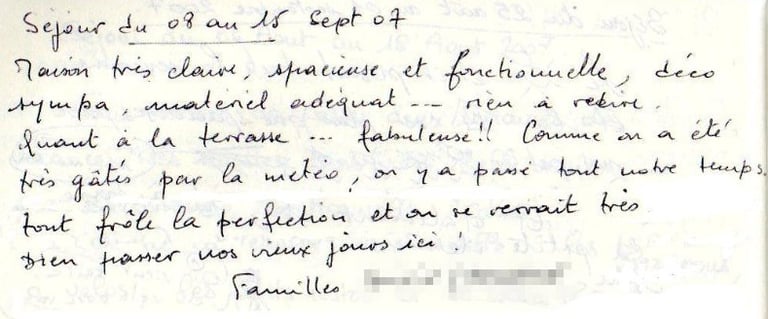 Séjour du 08 au 15 Sept 07
Maison très claire, spacieuse et fonctionnelle, déco
sympa, matériel adéquat --- rien à redire.
Quant à la terrasse ... fabuleuse!! Comme on a été
très gâtés par la météo, on y a passé tout notre temps.
tout frôle la perfection et on se verrait très
bien passer nos vieux jours ici!
Familles